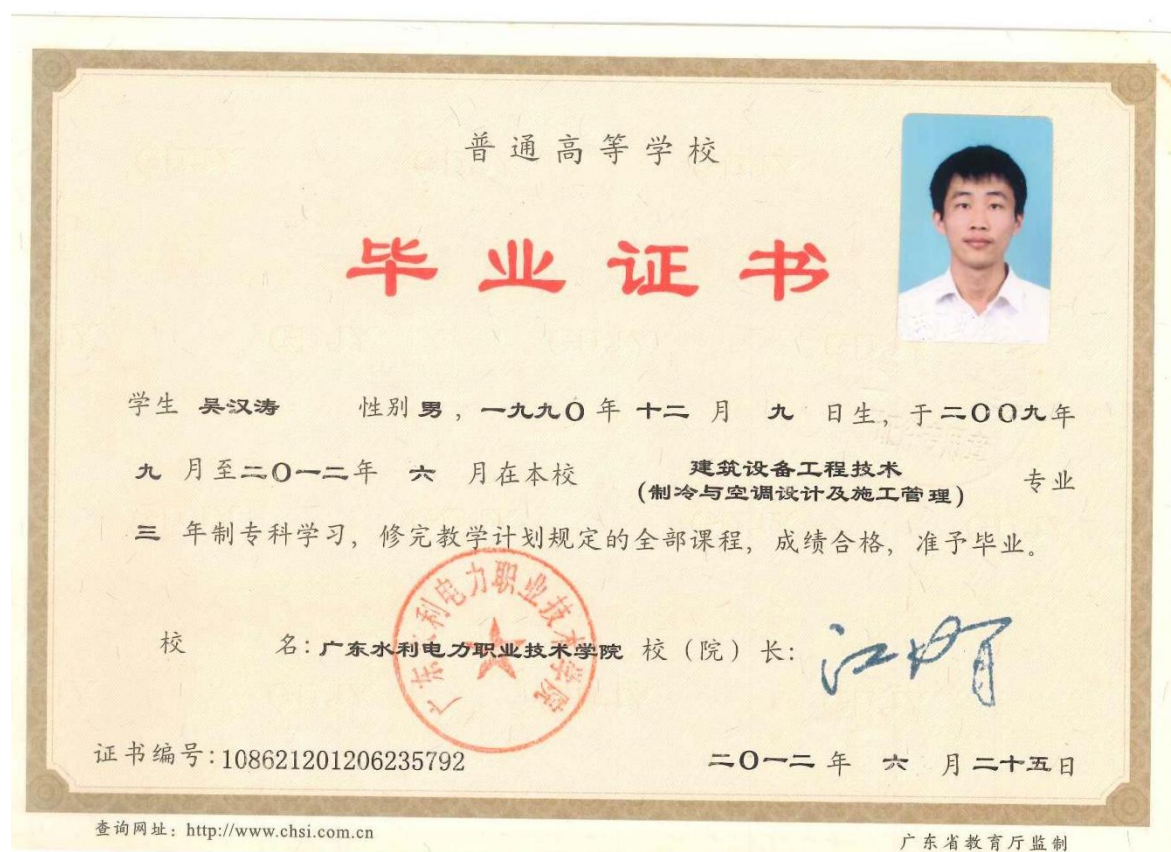 普通高等学校
毕业证书
学生 吴汉涛 性别 男，一九九〇年 十二 月 九 日生，于二〇〇九年
九 月至二〇一二年 六 月在本校 建筑设备工程技术
(制冷与空调设计及施工管理) 专业
三 年制专科学习，修完教学计划规定的全部课程，成绩合格，准予毕业。
广东水利电力职业技术学院
校 名：广东水利电力职业技术学院 校（院）长：
证书编号：108621201206235792 二〇一二 年 六 月 二十五日
查询网址：http://www.chsi.com.cn 广东省教育厅监制